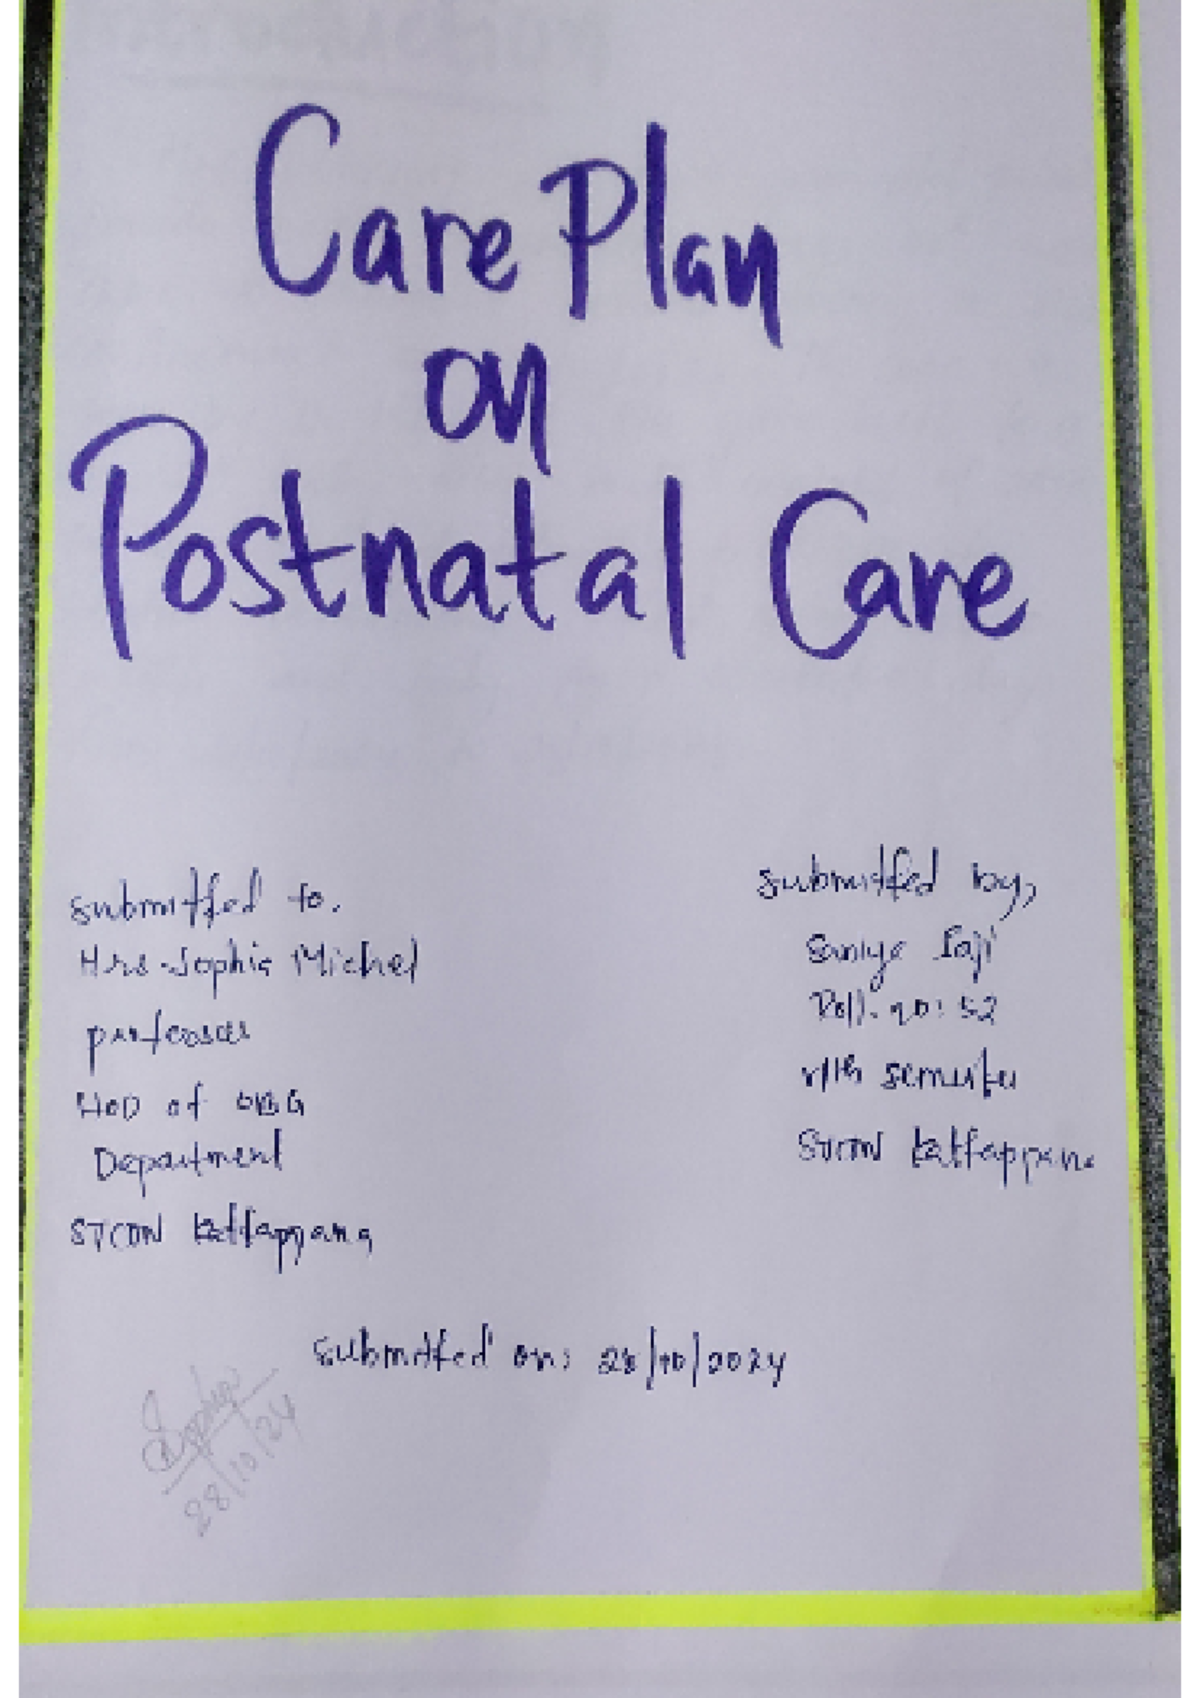 Care Plan
on
Postnatal Care
submitted to,
Mrs. Sophia Michel
professor
HOD of OBG
Department
STCON Kattappana
submitted by,
Saji
Roll. no: 52
VIth semester
STCON Kattappana
submitted on: 28/10/2024
28/10/24